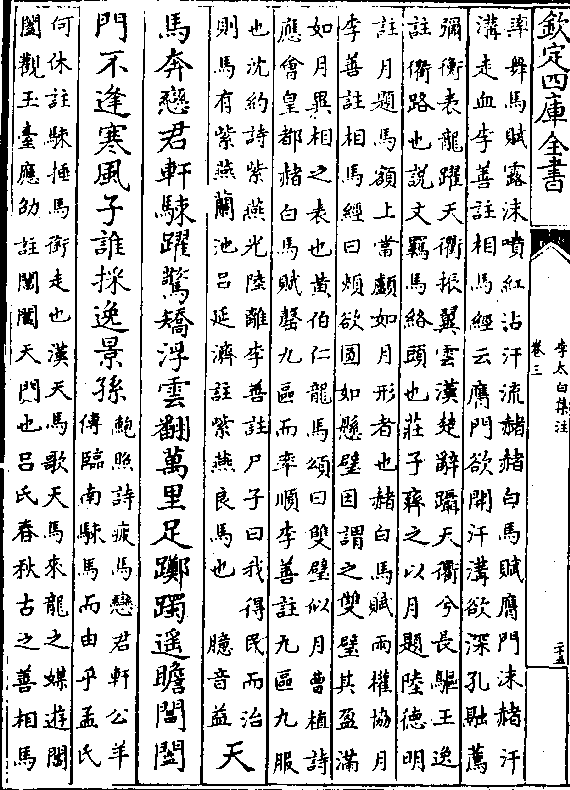 欽定四庫全書
李太白集注
卷三
二十五
澤舞馬賦露沫噴紅沾汗流赭赭白馬賦膺門沫赭汗
溝走血李善註相馬經云膺門欲開汗溝欲深孔融薦
彌衡表龍躍天衢振翼雲漢楚辭躡天衢兮長驅王逸
註衢路也說文羈馬絡頭也莊子齊之以月題陸德明
註月題馬額上當顱如月形者也赭白馬賦兩權協月
李善註相馬經曰頰欲圓如懸璧因謂之雙璧其盈滿
如月異相之表也黄伯仁龍馬頌曰雙璧似月曹植詩
應會皇都赭白馬賦罄九區而率順李善註九區九服
也沈約詩紫燕光陸離李善註尸子曰我得民而治
則馬有紫燕蘭池吕延濟註紫燕良馬也 臆音益
天
馬奔戀君軒駷躍驚矯浮雲翻萬里足躑躅遥瞻閶闔
門不逢寒風子誰採逸景孫
鮑照詩疲馬戀君軒公羊
傳臨南駷馬而由乎孟氏
何休註駷捶馬銜走也漢天馬歌天馬來龍之媒遊閶
闔觀玉臺應劭註閶闔天門也吕氏春秋古之善相馬